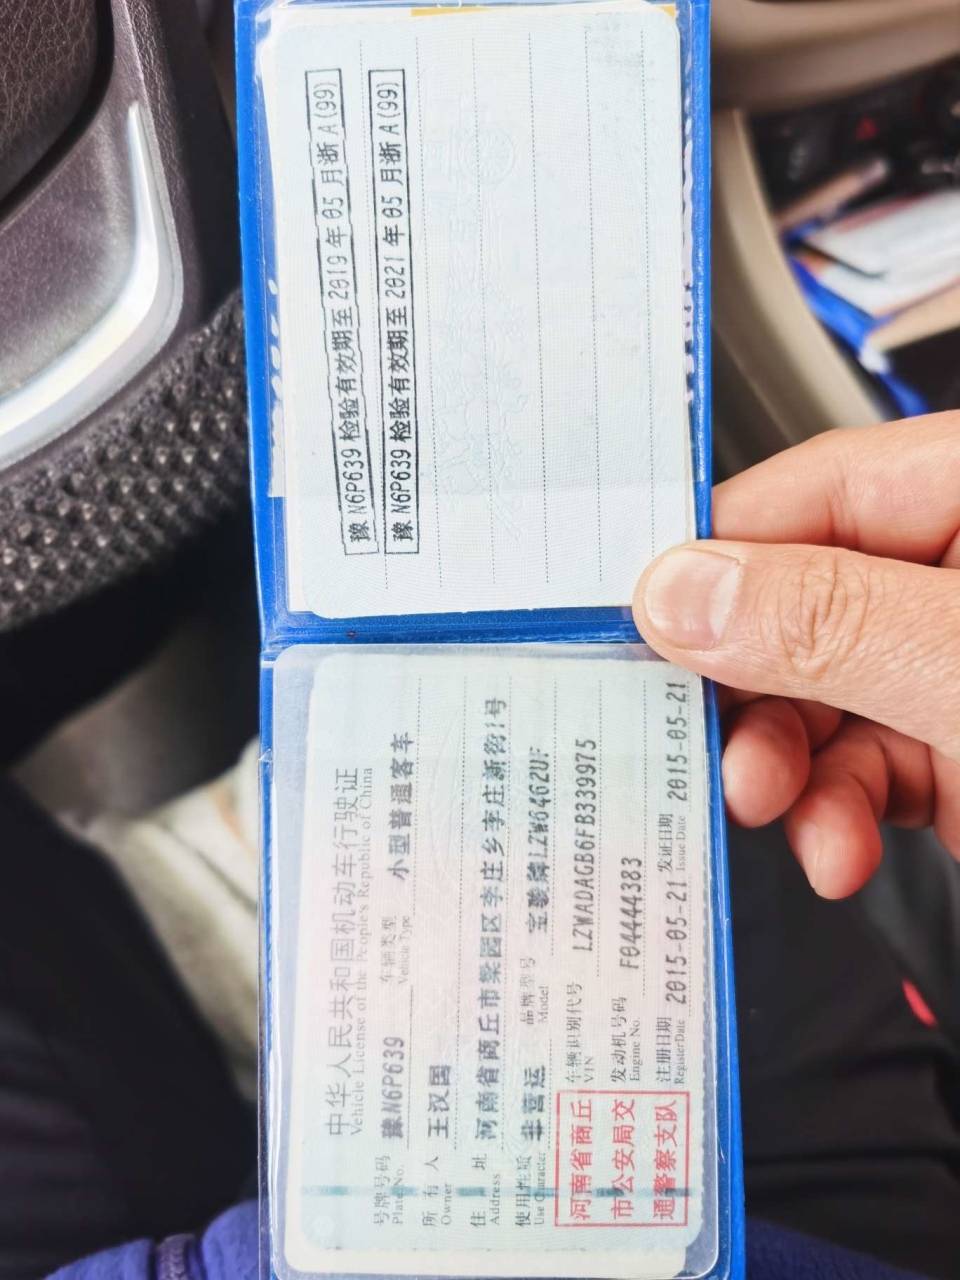 豫N6P639检验有效期至2019年05月浙A(99)
豫N6P639检验有效期至2021年05月浙A(99)
中华人民共和国机动车行驶证
Vehicle License of the People's Republic of China
号牌号码 豫N6P639 车辆类型 小型普通客车
Plate No. Vehicle Type
所有人 王汉国
Owner
住址 河南省商丘市梁园区李庄乡李庄新街1号
Address
使用性质 非营运 品牌型号 宝骏牌LZW6462UF
Use Character Model
河南省商丘
市公安局交
通警察支队
车辆识别代号 LZWADAGB6FB339975
VIN
发动机号码 F04444383
Engine No.
注册日期 2015-05-21 发证日期 2015-05-21
Register Date Issue Date